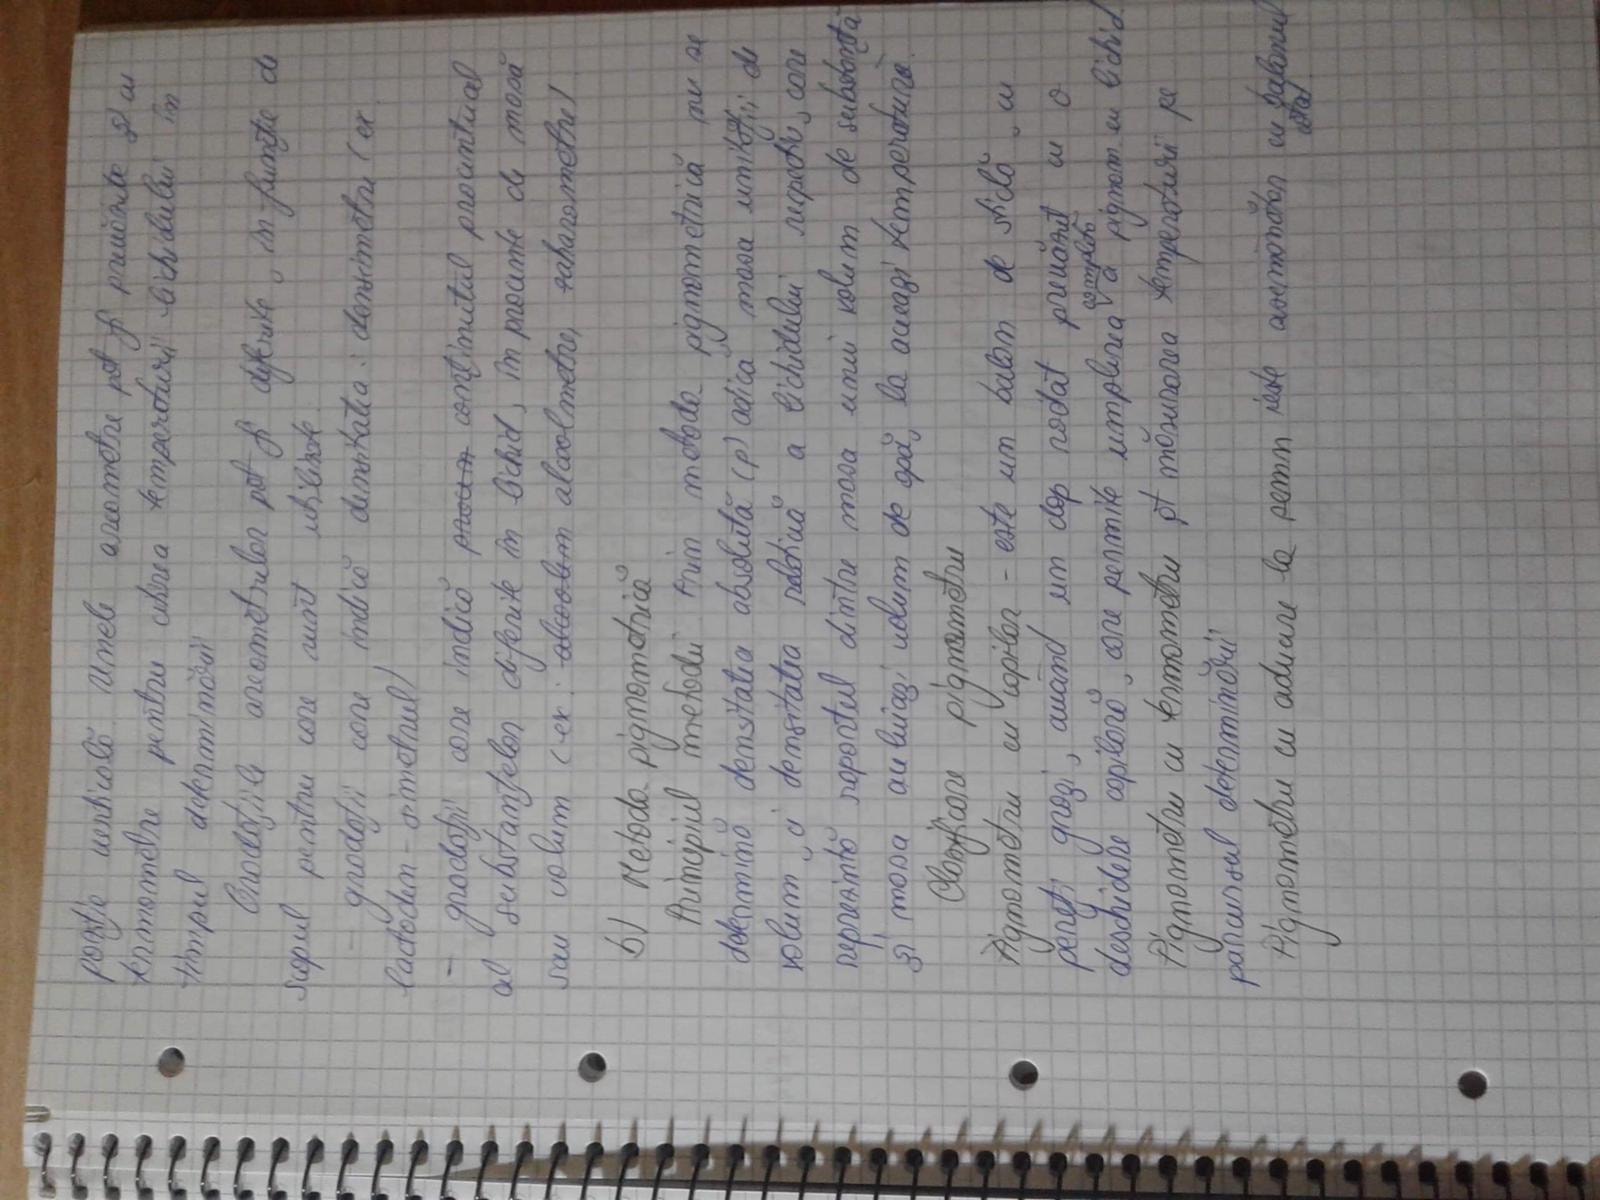 poziție verticală. Unele areometre pot fi prevăzute și cu
termometre pentru citirea temperaturii lichidului în
timpul determinării
Gradațiile areometrelor pot fi diferite, în funcție de
scopul pentru care sunt utilizate.
- gradații care indică densitatea: densimetru (ex
lactodensimetrul)
- gradații care indică conținutul procentual
al substanțelor diferite în lichid, în procente de masă
sau volum (ex: alcoolmetre, zaharometre)
b) Metoda pignometrică
Principiul metodei: Prin metoda pignometrică nu se
determină densitatea absolută (ρ) adică masa unității de
volum, ci densitatea relativă a lichidului respectiv, care
reprezintă raportul dintre masa unui volum de substanță
și masa aceluiași volum de apă, la aceeași temperatură.
Clasificare pignometru
Pignometru cu capilar - este un balon de sticlă, cu
pereți groși, având un dop rodat prevăzut cu o
deschidere capilară, care permite umplerea completă a pignom cu lichid
Pignometru cu termometru pt măsurarea temperaturii pe
parcursul determinării
Pignometru cu aducere la semn este asemănător cu balonul
cotat